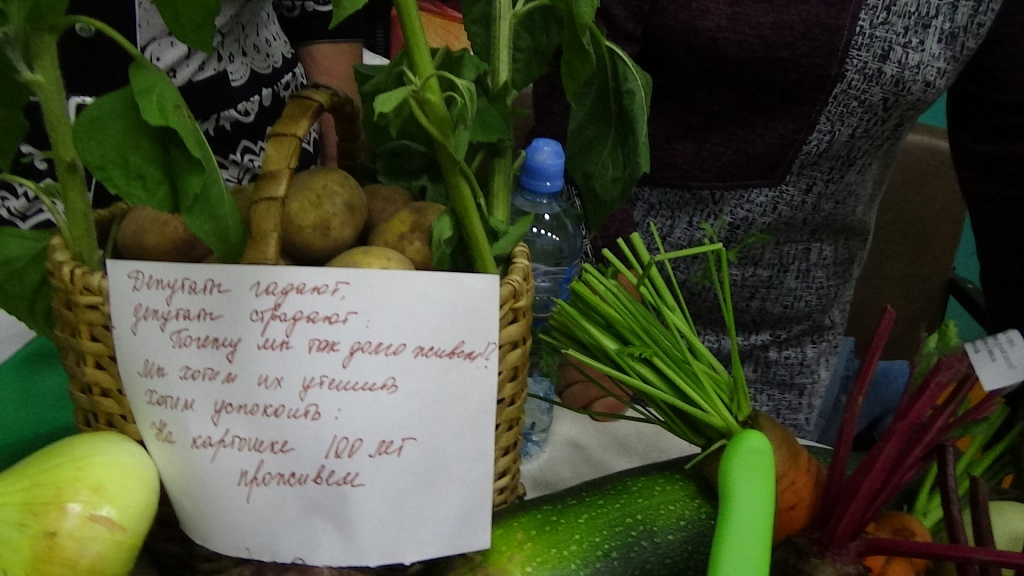 Депутаты гадают,
депутаты страдают:
Почему мы так долго живем!?
Мы хотим их утешить
Хотим успокоить:
На картошке 100 лет
проживем